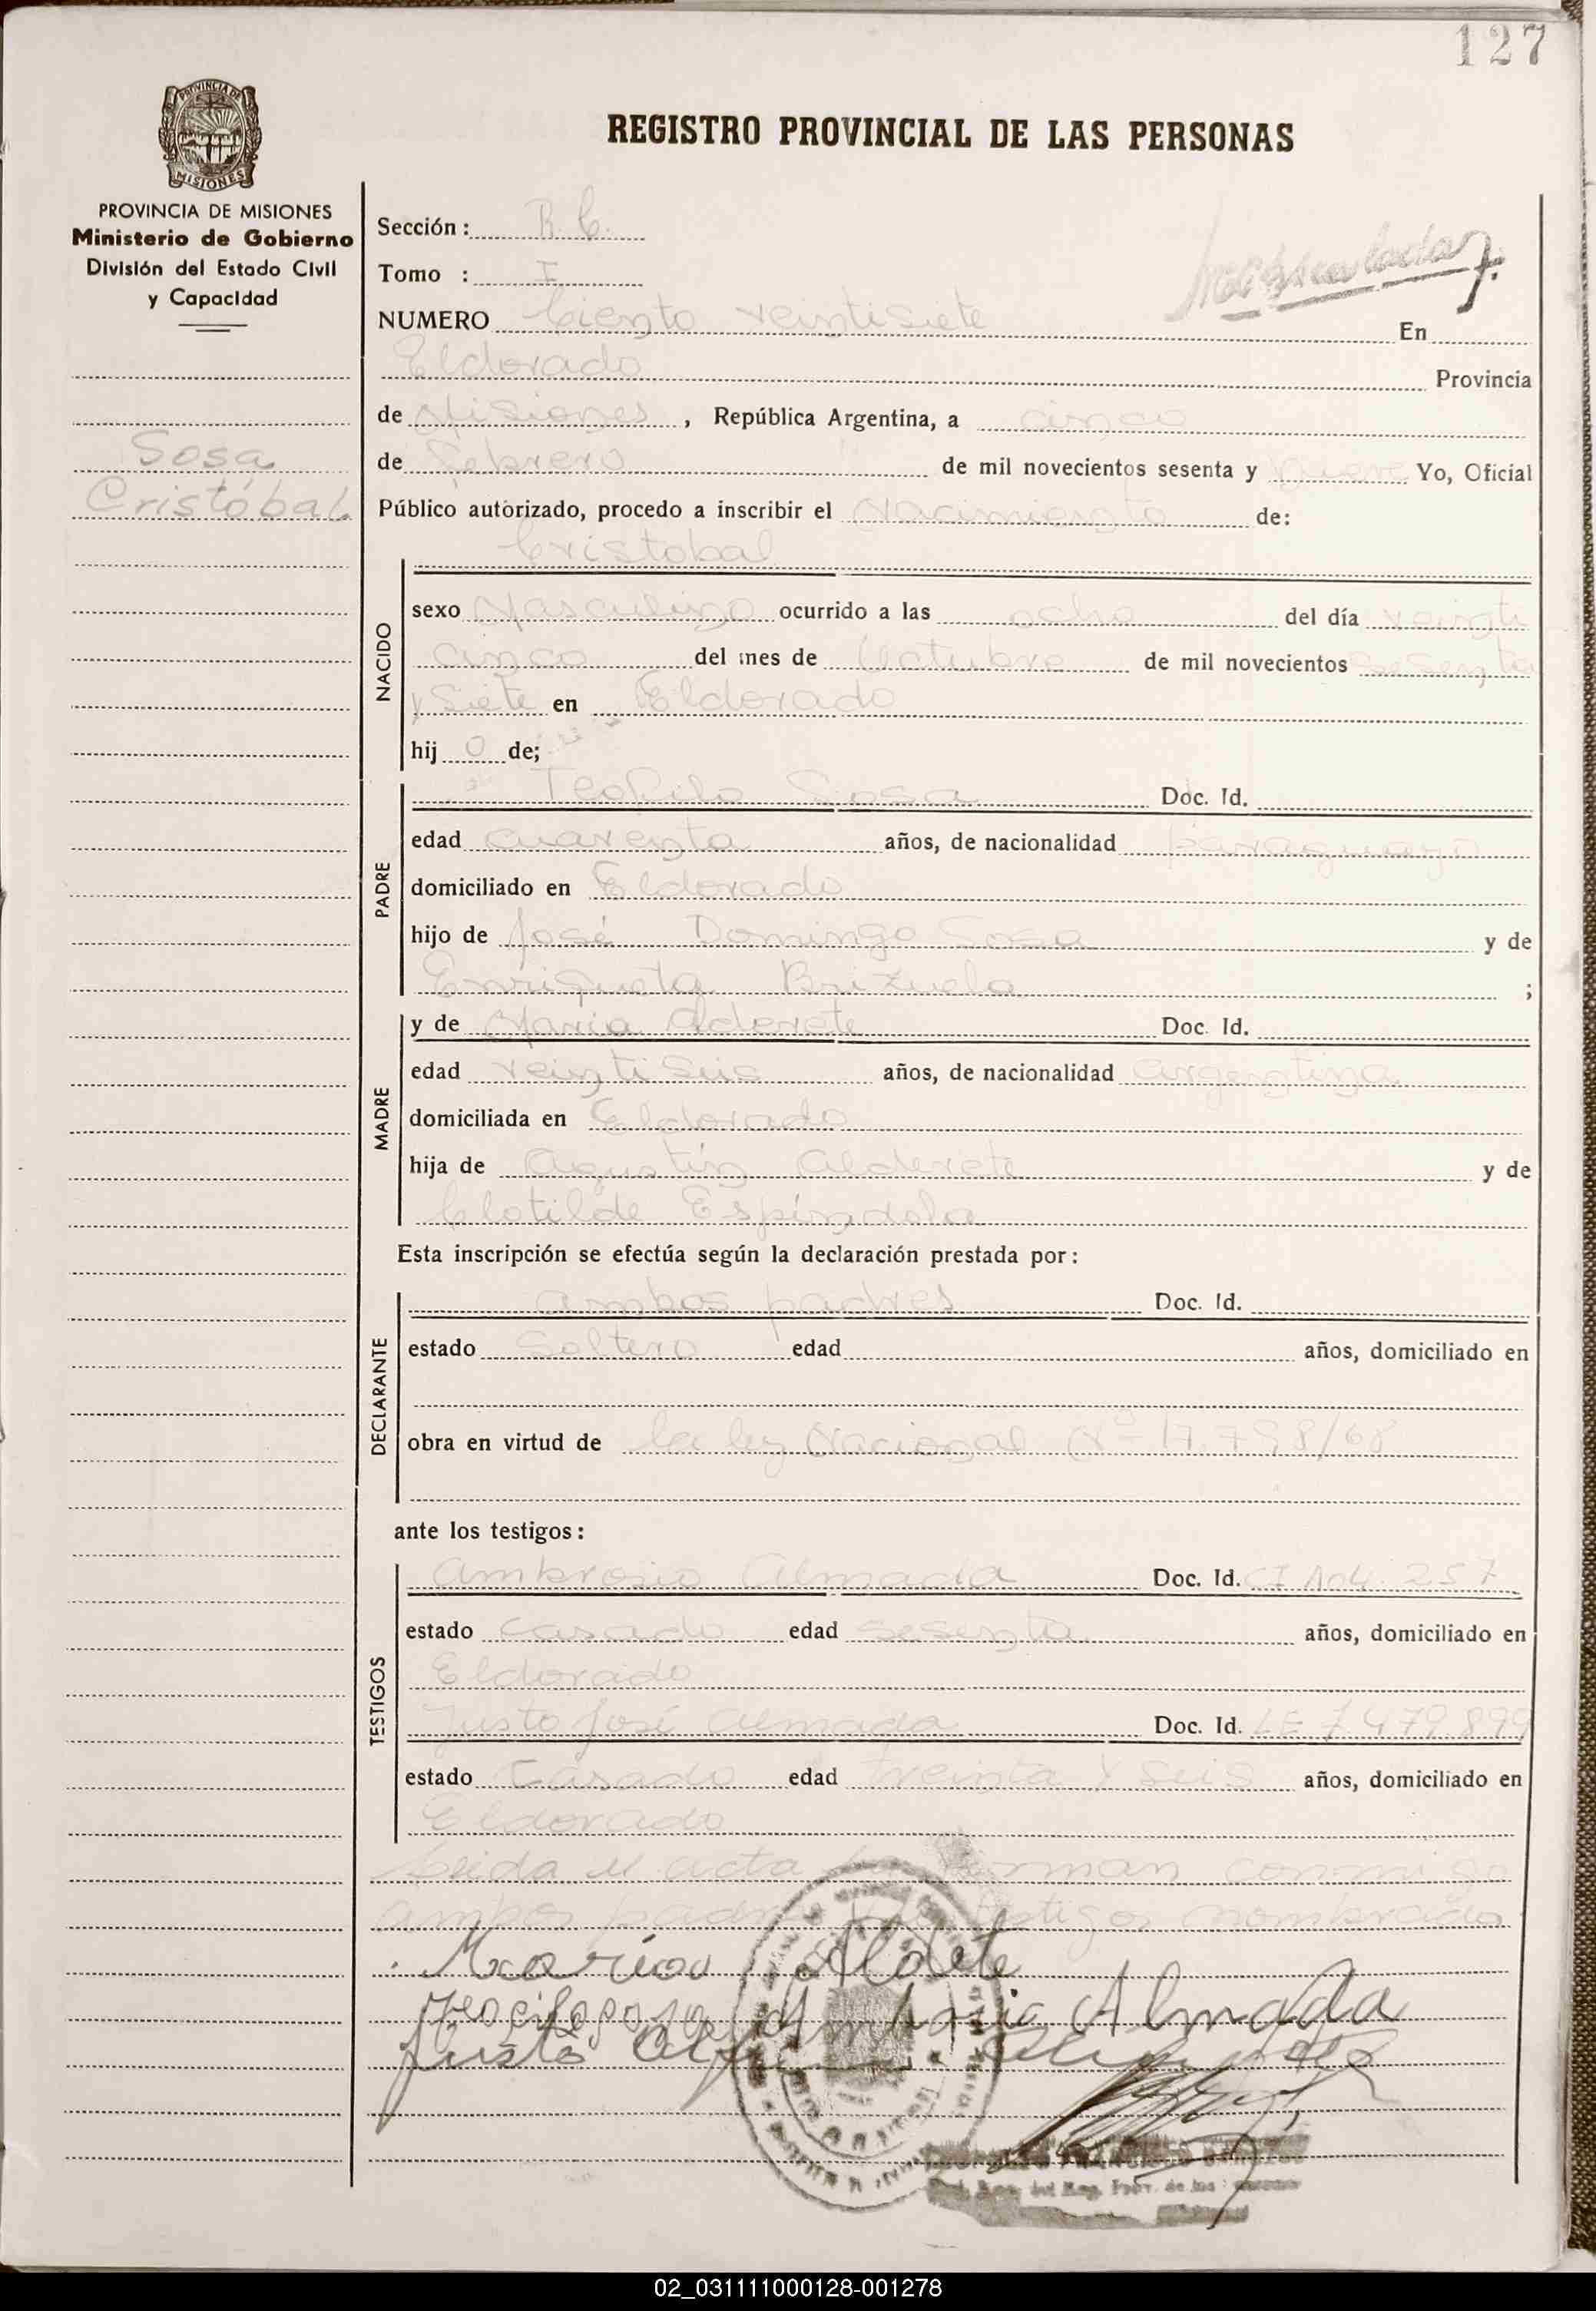 127
PROVINCIA DE
MISIONES
REGISTRO PROVINCIAL DE LAS PERSONAS
PROVINCIA DE MISIONES
Ministerio de Gobierno
División del Estado Civil
y Capacidad
Sosa
Cristóbal
Sección: R. C.
Tomo : I
NUMERO Ciento veintisiete En
Eldorado Provincia
de Misiones, República Argentina, a cinco
de Febrero de mil novecientos sesenta y nueve Yo, Oficial
Público autorizado, procedo a inscribir el Nacimiento de:
Cristobal
NACIDO
sexo Masculino ocurrido a las ocho del día veinti
cinco del mes de Octubre de mil novecientos sesenta
y siete en Eldorado
hij o de;
PADRE
Teofilo Sosa Doc. Id.
edad cuarenta años, de nacionalidad paraguaya
domiciliado en Eldorado
hijo de José Domingo Sosa y de
Enriqueta Brizuela ;
MADRE
y de Maria Alderete Doc. Id.
edad veintiseis años, de nacionalidad argentina
domiciliada en Eldorado
hija de Agustin Alderete y de
Clotilde Espindola
Esta inscripción se efectúa según la declaración prestada por:
DECLARANTE
ambos padres Doc. Id.
estado Soltero edad años, domiciliado en
obra en virtud de la ley Nacional Nº 17.798/68
ante los testigos:
TESTIGOS
Ambrosio Almada Doc. Id. CI 104.257
estado casado edad sesenta años, domiciliado en
Eldorado
Justo José Almada Doc. Id. LE 7.479.899
estado Casado edad treinta y seis años, domiciliado en
Eldorado
Leida el acta la firman conmigo
ambos padres y los testigos nombrados
Maria Aldete
Almada
Justo
02_031111000128-001278